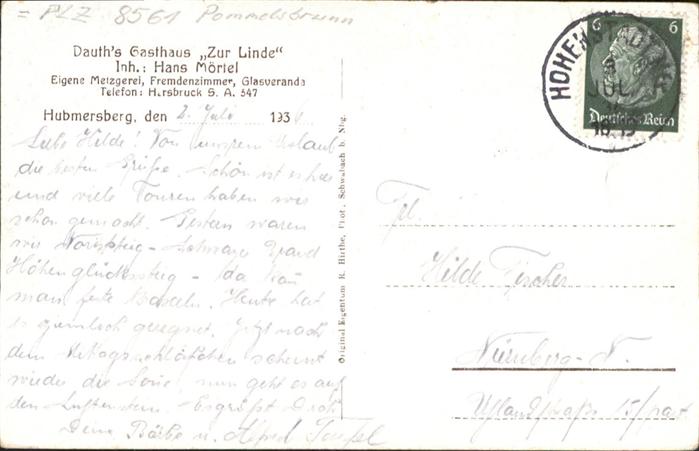 = PLZ 8561 Pommelsbrunn
Dauth's Gasthaus „Zur Linde"
Inh.: Hans Mörtel
Eigene Metzgerei, Fremdenzimmer, Glasveranda
Telefon: Hersbruck S. A. 547
Hubmersberg, den 2. Juli 1936
Liebe Hilde! Von unserem Urlaub
die besten Grüße. Schön ist es hier
und viele Touren haben wir
schon gemacht. Gestern waren
wir Norissteig - Schwarze Brand
Höhenglücksteig - da kann
man feste Basteln. Heute hat
es ziemlich geregnet. Jetzt nach
dem Mittagsschläfchen scheint
wieder die Sonne, nun geht es auf
den Es grüßt Dich
Deine u. Alfred
Original Eigentum R. Hirthe, Phot., Schwabach b. Nbg.
6 6
Deutsches Reich
HOHENSTADT
2
JUL
Frl.
Hilde Fischer
Nürnberg-N.
Uhlandstraße 15/part.